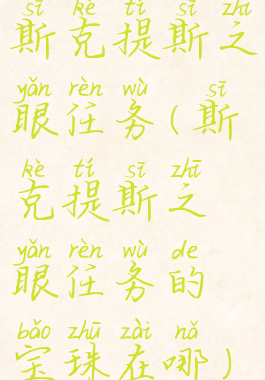 sī kè tí sī zhī
斯克提斯之
yǎn rèn wù sī
眼任务(斯
kè tí sī zhī
克提斯之
yǎn rèn wù de
眼任务的
bǎo zhū zài nǎ
宝珠在哪)